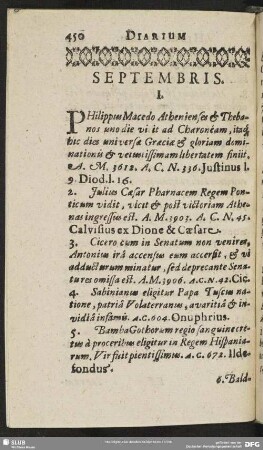 450 DIARIUM
SEPTEMBRIS.
1.
PHilippus Macedo Athenienses & Theba-
nos uno die vicit ad Charonéam, itaq;
hic dies universæ Græciæ & gloriam domi-
nationis & vetustissimam libertatem finiit,
A. M. 3612. A. C. N. 336. Justinus l.
9. Diod. l. 16.
2. Julius Cæsar Pharnacem Regem Pon-
ticum vidit, vicit & post victoriam Athe-
nas ingressus est. A. M. 3903. A. C. N. 45.
Calvisius ex Dione & Cæsare.
3. Cicero cum in Senatum non veniret,
Antonius irâ accensus eum accersit, & vi
adducturum minatur, sed deprecante Sena-
tu res omissa est. A. M. 3906. A. C. N. 42. Cic.
4. Sabinianus eligitur Papa Tuscus na-
tione, patriâ Volaterranus, avaritiâ & in-
vidiâ infamis. A. C. 604. Onuphrius.
5. Bamba Gothorum regio sanguine cre-
tus à proceribus eligitur in Regem Hispania-
rum. Vir fuit pientissimus. A. C. 672. Ilde
fondus.
6. Bald-
SLUB
DFG